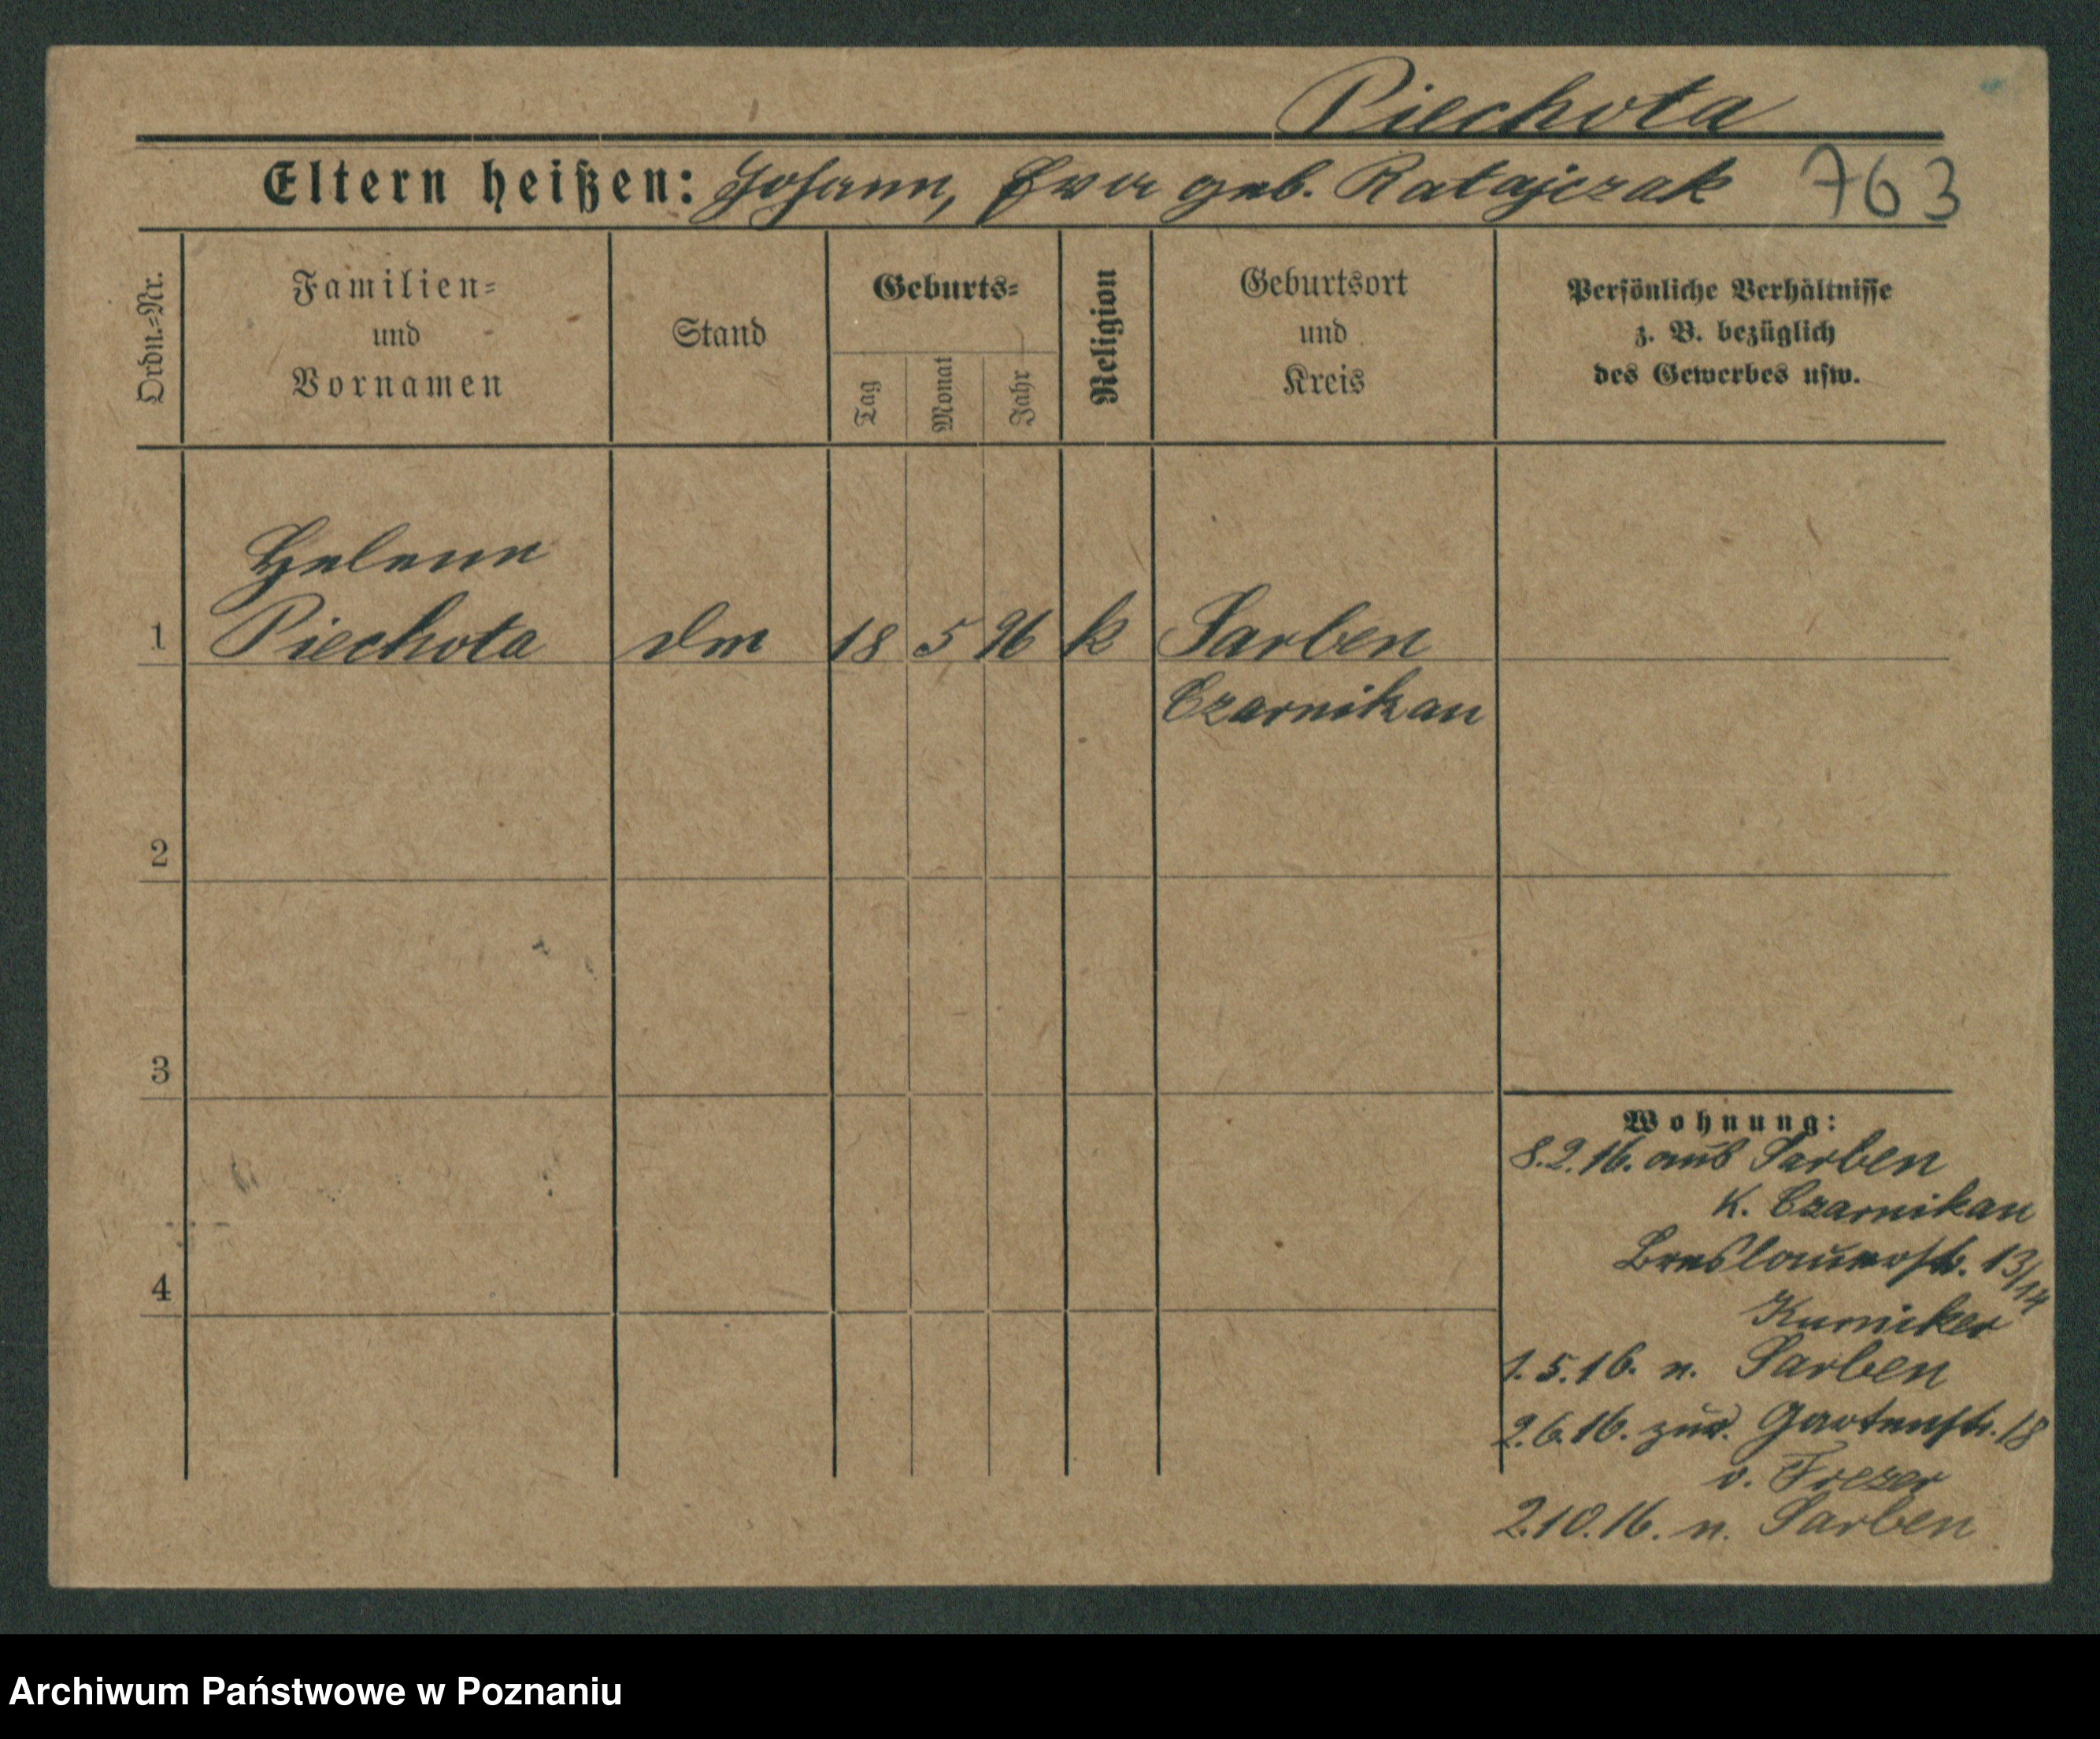 Piechota
Eltern heißen: Johann, Eva geb. Ratajczak 763
Ordn.=Nr.
Familien=
und
Vornamen
Stand
Geburts=
Tag
Monat
Jahr
Religion
Geburtsort
und
Kreis
Persönliche Verhältnisse
z. B. bezüglich
des Gewerbes usw.
Helene
1 Piechota Dm 18 5 96 k Sarben
Czarnikau
2
3
4
Wohnung:
8.2.16. aus Sarben
K. Czarnikau
Breslauerstr. 13/14
Kurniker
1.5.16. n. Sarben
2.6.16. zur. Gartenstr. 18
v. Frezer
2.10.16. n. Sarben
Archiwum Państwowe w Poznaniu